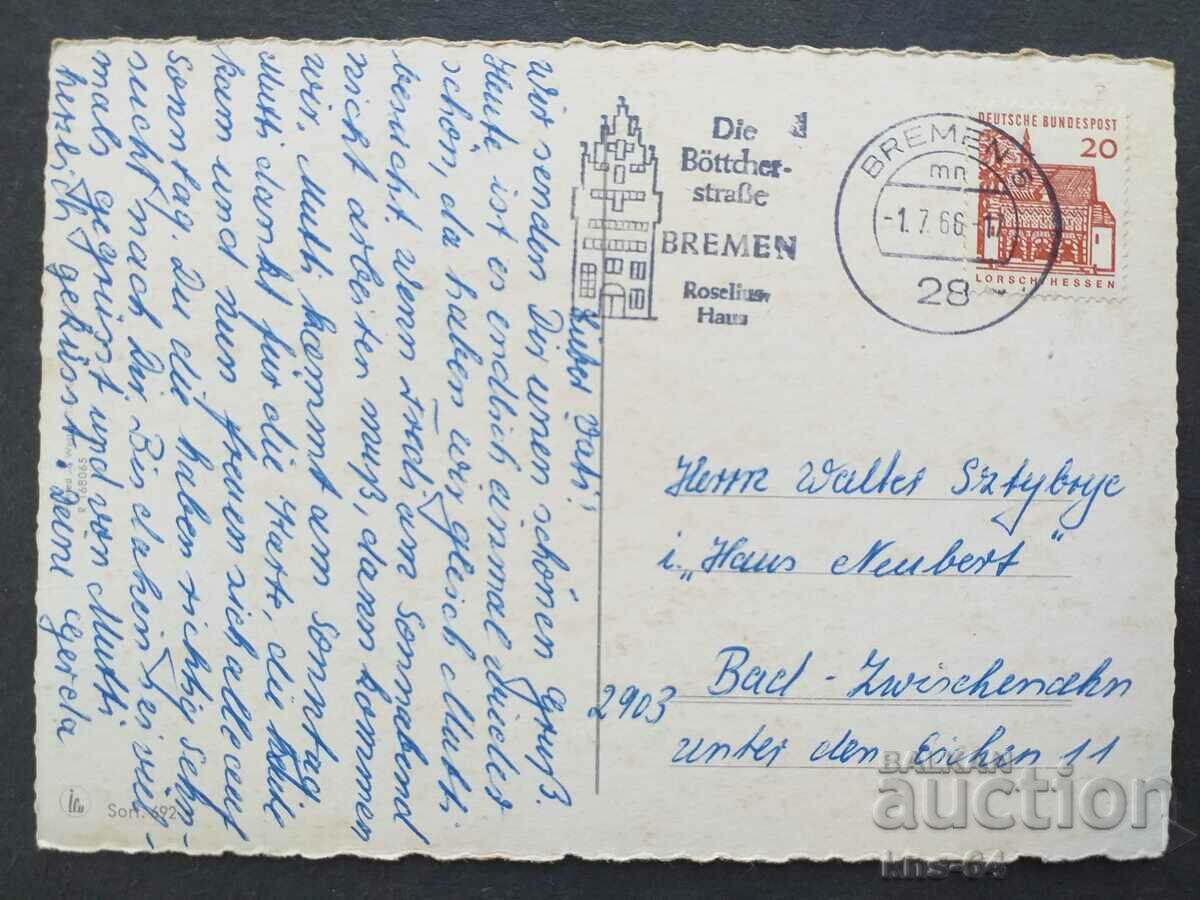 Lieber Vati!
Wir senden Dir einen schönen Gruß.
Heute ist es endlich einmal wieder
schön, da haben wir gleich Mutti
besucht. Wenn Frah am Sonnabend
nicht arbeiten muß, dann kommen
wir. Mutti kommt am Sonntag
Mutti dankt für die Karte, die
kam und nun freuen sich alle auf
Sonntag. Du die haben richtig Sehn-
sucht nach Dir. Bis dahin sei viel-
mals gegrüsst und von Mutti
herzlich geküsst. Deine Gerda
Die
Böttcher-
straße
BREMEN
Roselius-
Haus
BREMEN 5
mn
-1.7.66-17
28
DEUTSCHE BUNDESPOST
20
LORSCH/HESSEN
Herrn Walter Sztybryc
i. „Haus Neubert"
2903 Bad-Zwischenahn
unter den Eichen 11
R 68065
Sort. 692
BALKAN
auction
kns-64